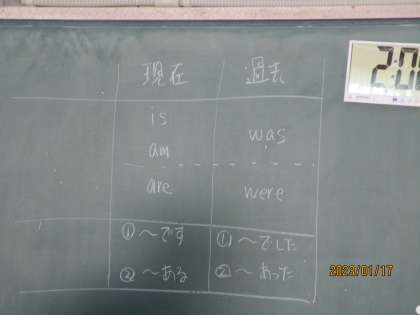 現在 過去
is
am
was
are
were
①~です ①~でした
②~ある ②~あった
2023/01/17